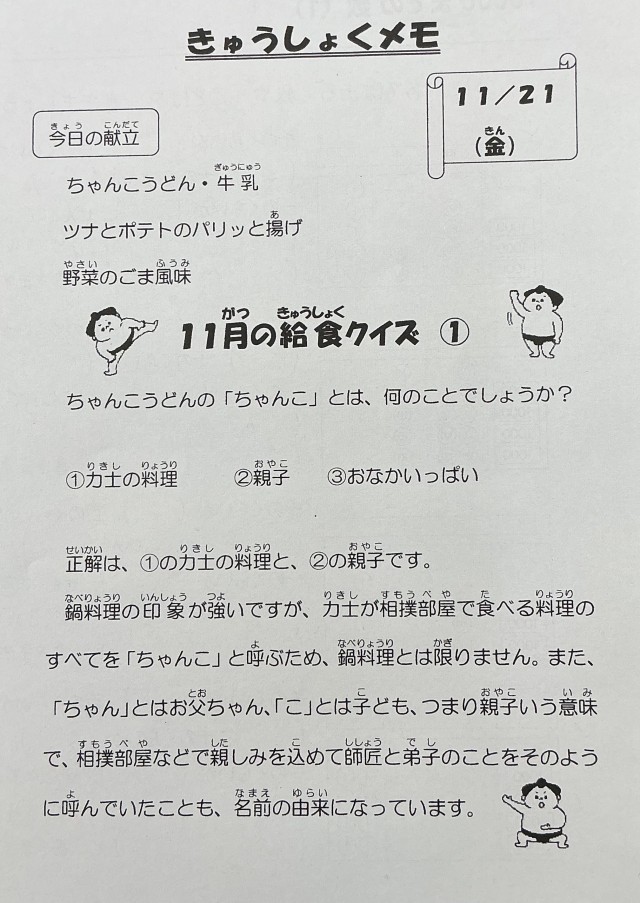 きゅうしょくメモ
11/21
(金)
今日の献立
ちゃんこうどん・牛乳
ツナとポテトのパリッと揚げ
野菜のごま風味
11月の給食クイズ ①
ちゃんこうどんの「ちゃんこ」とは、何のことでしょうか?
①力士の料理 ②親子 ③おなかいっぱい
正解は、①の力士の料理と、②の親子です。
鍋料理の印象が強いですが、力士が相撲部屋で食べる料理の
すべてを「ちゃんこ」と呼ぶため、鍋料理とは限りません。また、
「ちゃん」とはお父ちゃん、「こ」とは子ども、つまり親子いう意味
で、相撲部屋などで親しみを込めて師匠と弟子のことをそのよう
に呼んでいたことも、名前の由来になっています。